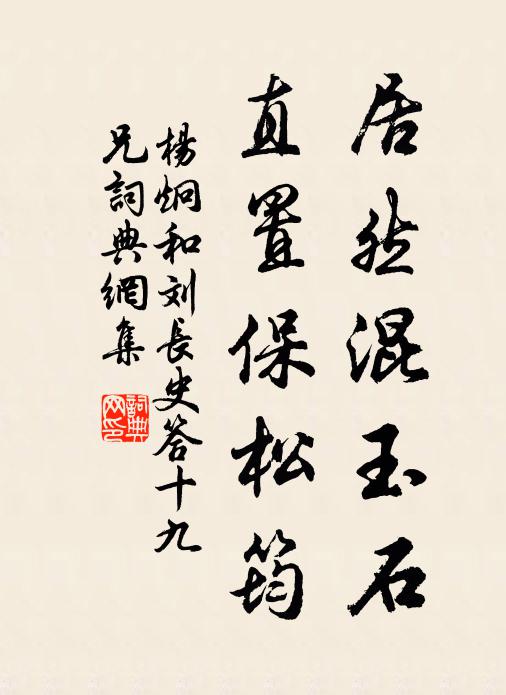 居然混玉石
直置保松筠
楊炯和刘長史答十九
兄詞典網集
詞典
网印